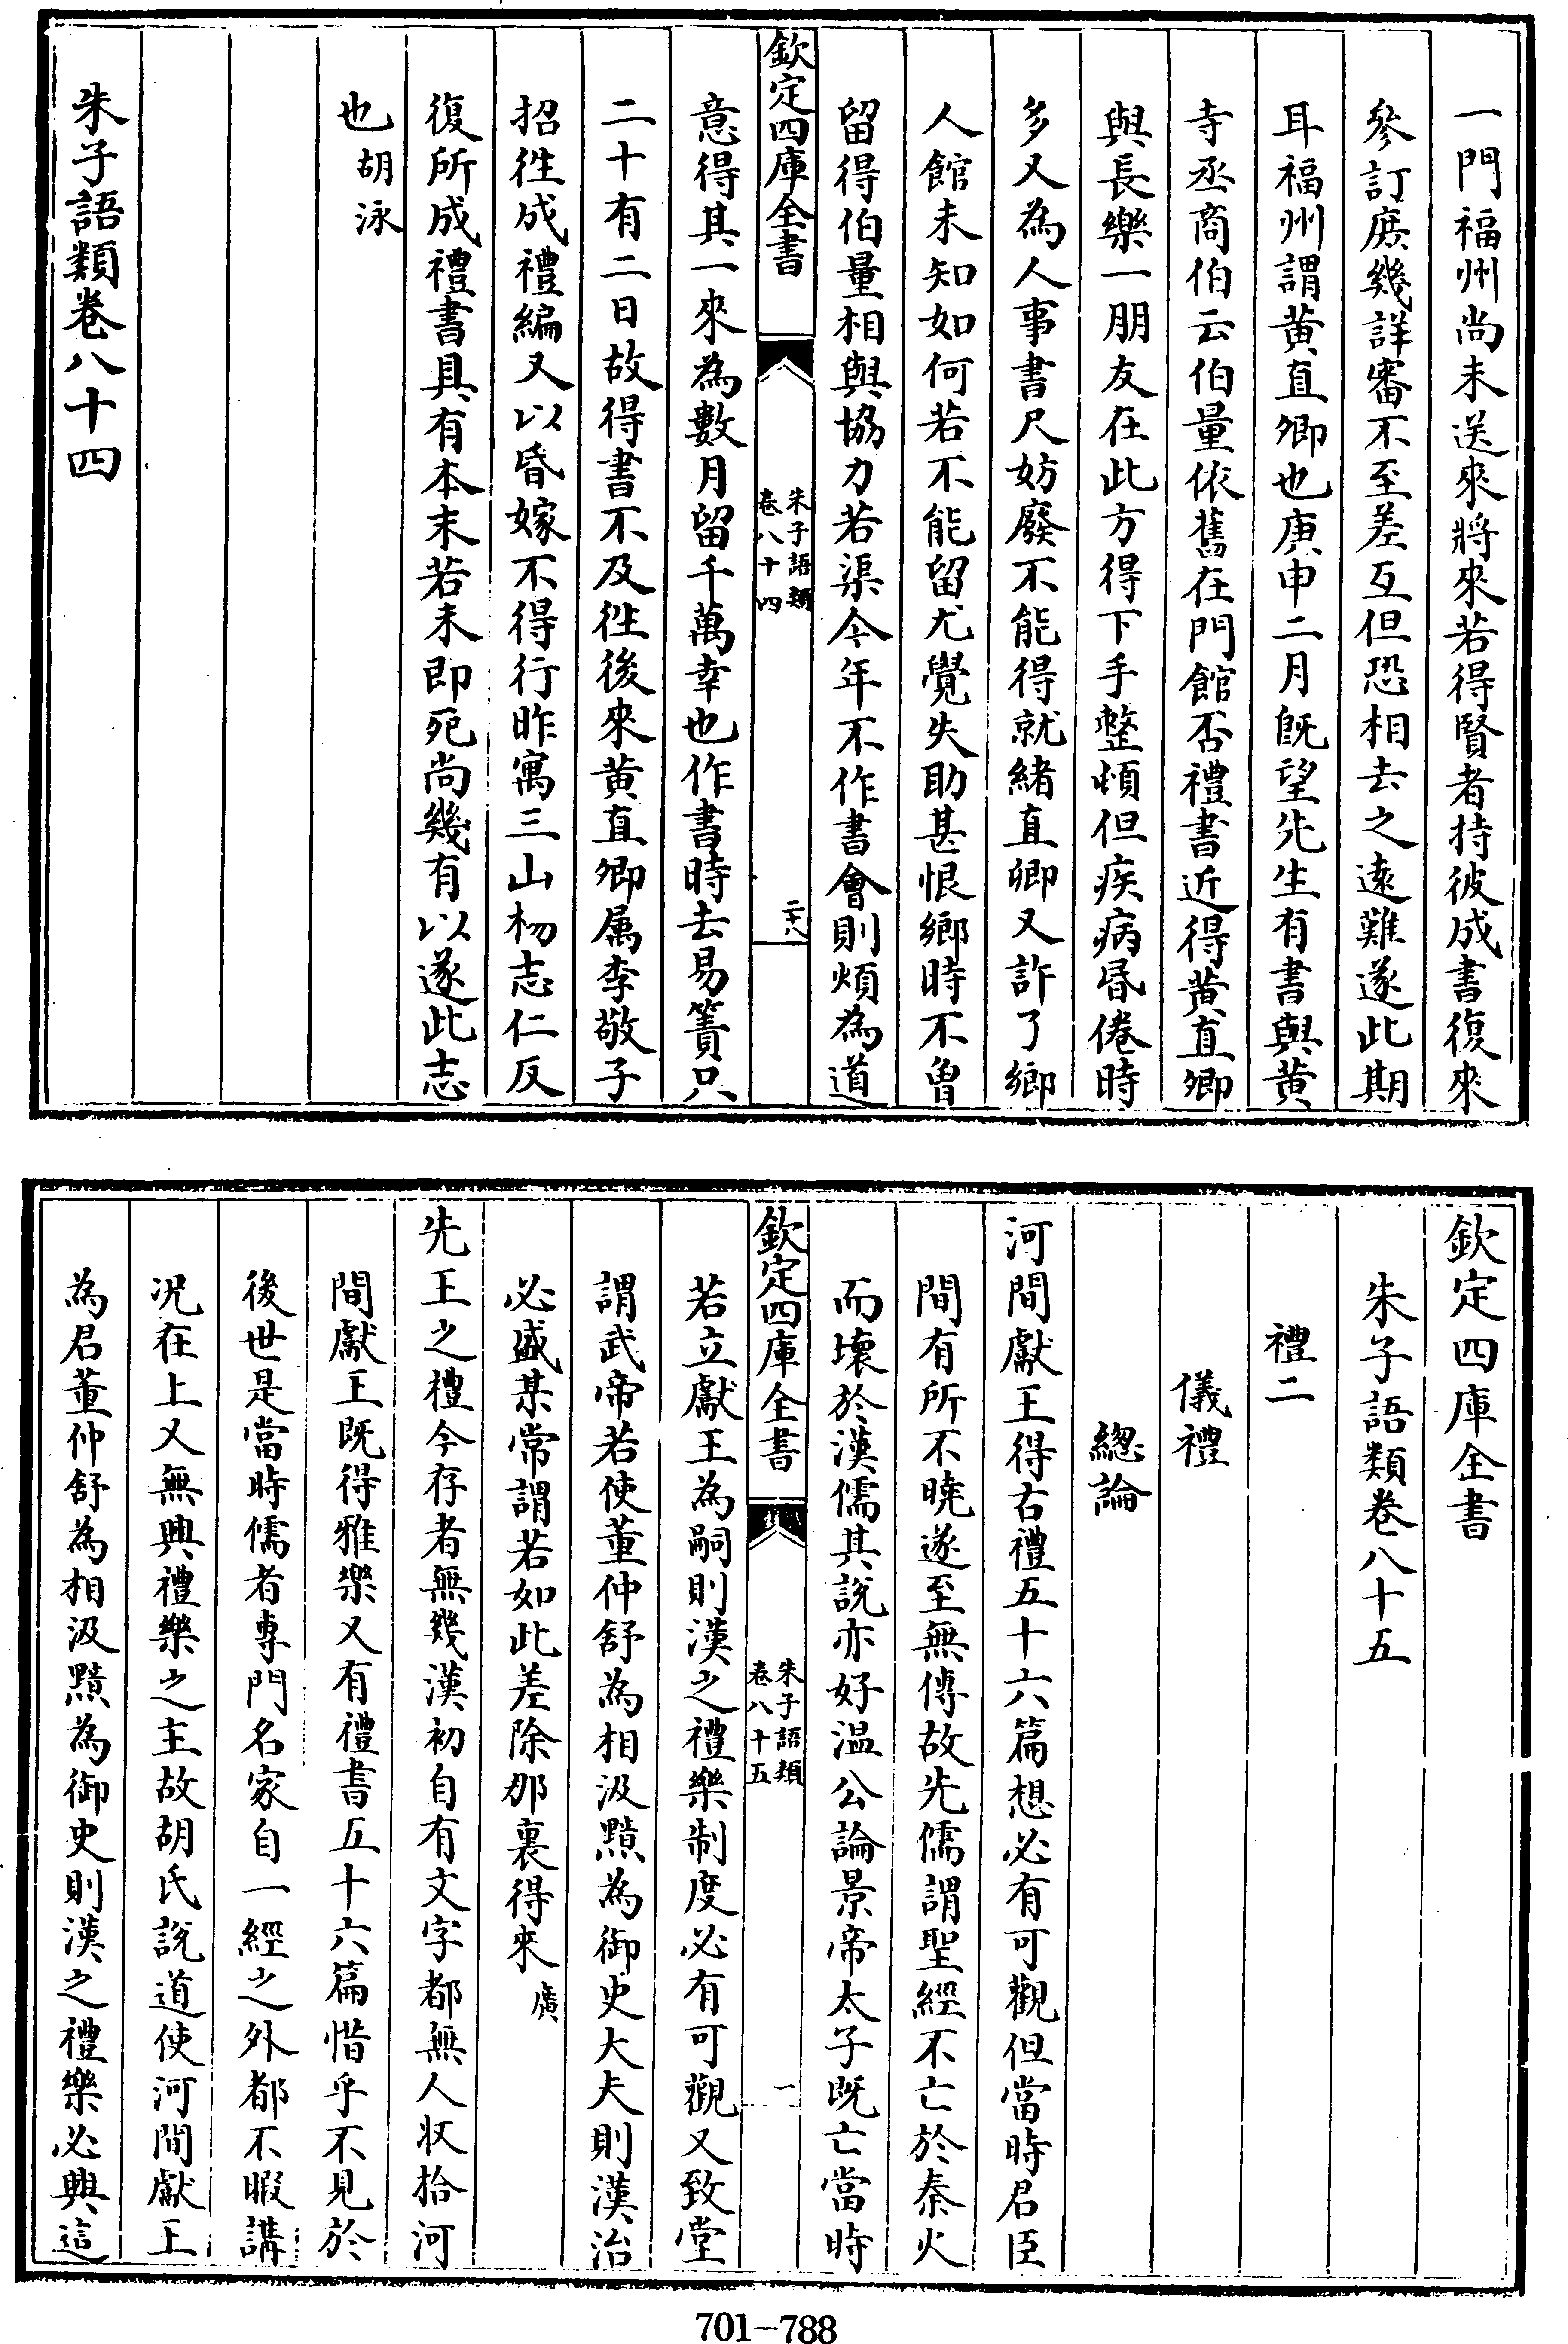 一門福州尚未送來將來若得賢者持彼成書復來
參訂庶幾詳審不至差互但恐相去之遠難遂此期
耳福州謂黄直卿也庚申二月旣望先生有書與黄
寺丞商伯云伯量依舊在門館否禮書近得黄直卿
與長樂一朋友在此方得下手整頓但疾病昬倦時
多又為人事書尺妨廢不能得就緒直卿又許了鄉
人館未知如何若不能留尤覺失助甚恨鄉時不曾
留得伯量相與協力若渠今年不作書會則煩為道
欽定四庫全書
朱子語類
卷八十四
二十八
意得其一來為數月留千萬幸也作書時去易簀只
二十有二日故得書不及徃後來黄直卿属李敬子
招徃成禮編又以昏嫁不得行昨寓三山楊志仁反
復所成禮書具有本末若未即死尚幾有以遂此志
也胡泳
朱子語類卷八十四
欽定四庫全書
朱子語類卷八十五
禮二
儀禮
總論
河間獻王得古禮五十六篇想必有可觀但當時君臣
間有所不曉遂至無傳故先儒謂聖經不亡於秦火
而壞於漢儒其說亦好温公論景帝太子既亡當時
欽定四庫全書
朱子語類
卷八十五
一
若立獻王為嗣則漢之禮樂制度必有可觀又致堂
謂武帝若使董仲舒為相汲黯為御史大夫則漢治
必盛某常謂若如此差除那裏得來廣
先王之禮今存者無幾漢初自有文字都無人收拾河
間獻王既得雅樂又有禮書五十六篇惜乎不見於
後世是當時儒者專門名家自一經之外都不暇講
况在上又無興禮樂之主故胡氏說道使河間獻王
為君董仲舒為相汲黯為御史則漢之禮樂必興這
701-788